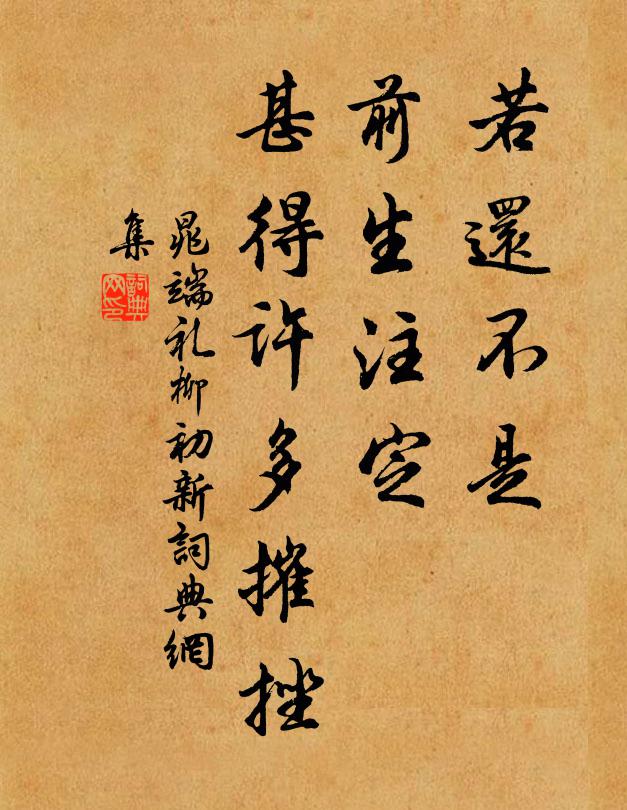 若還不是
前生注定
甚得許多摧挫
晁端礼柳初新詞典網
集
詞典
网印